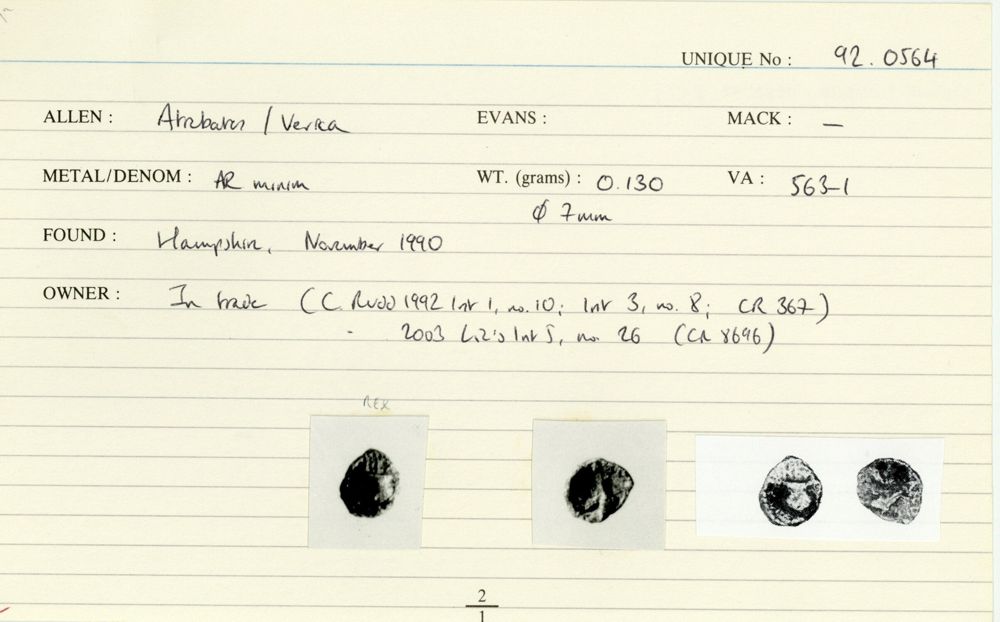 UNIQUE No : 92.0564
ALLEN : Atrebates / Verica EVANS : MACK : —
METAL/DENOM : AR minim WT. (grams) : 0.130 VA : 563-1
Ø 7mm
FOUND : Hampshire, November 1990
OWNER : In trade (C. Rudd 1992 list 1, no. 10; list 3, no. 8; CR 367)
2003 Liz's list 5, no. 26 (CR 8696)
REX
2
1